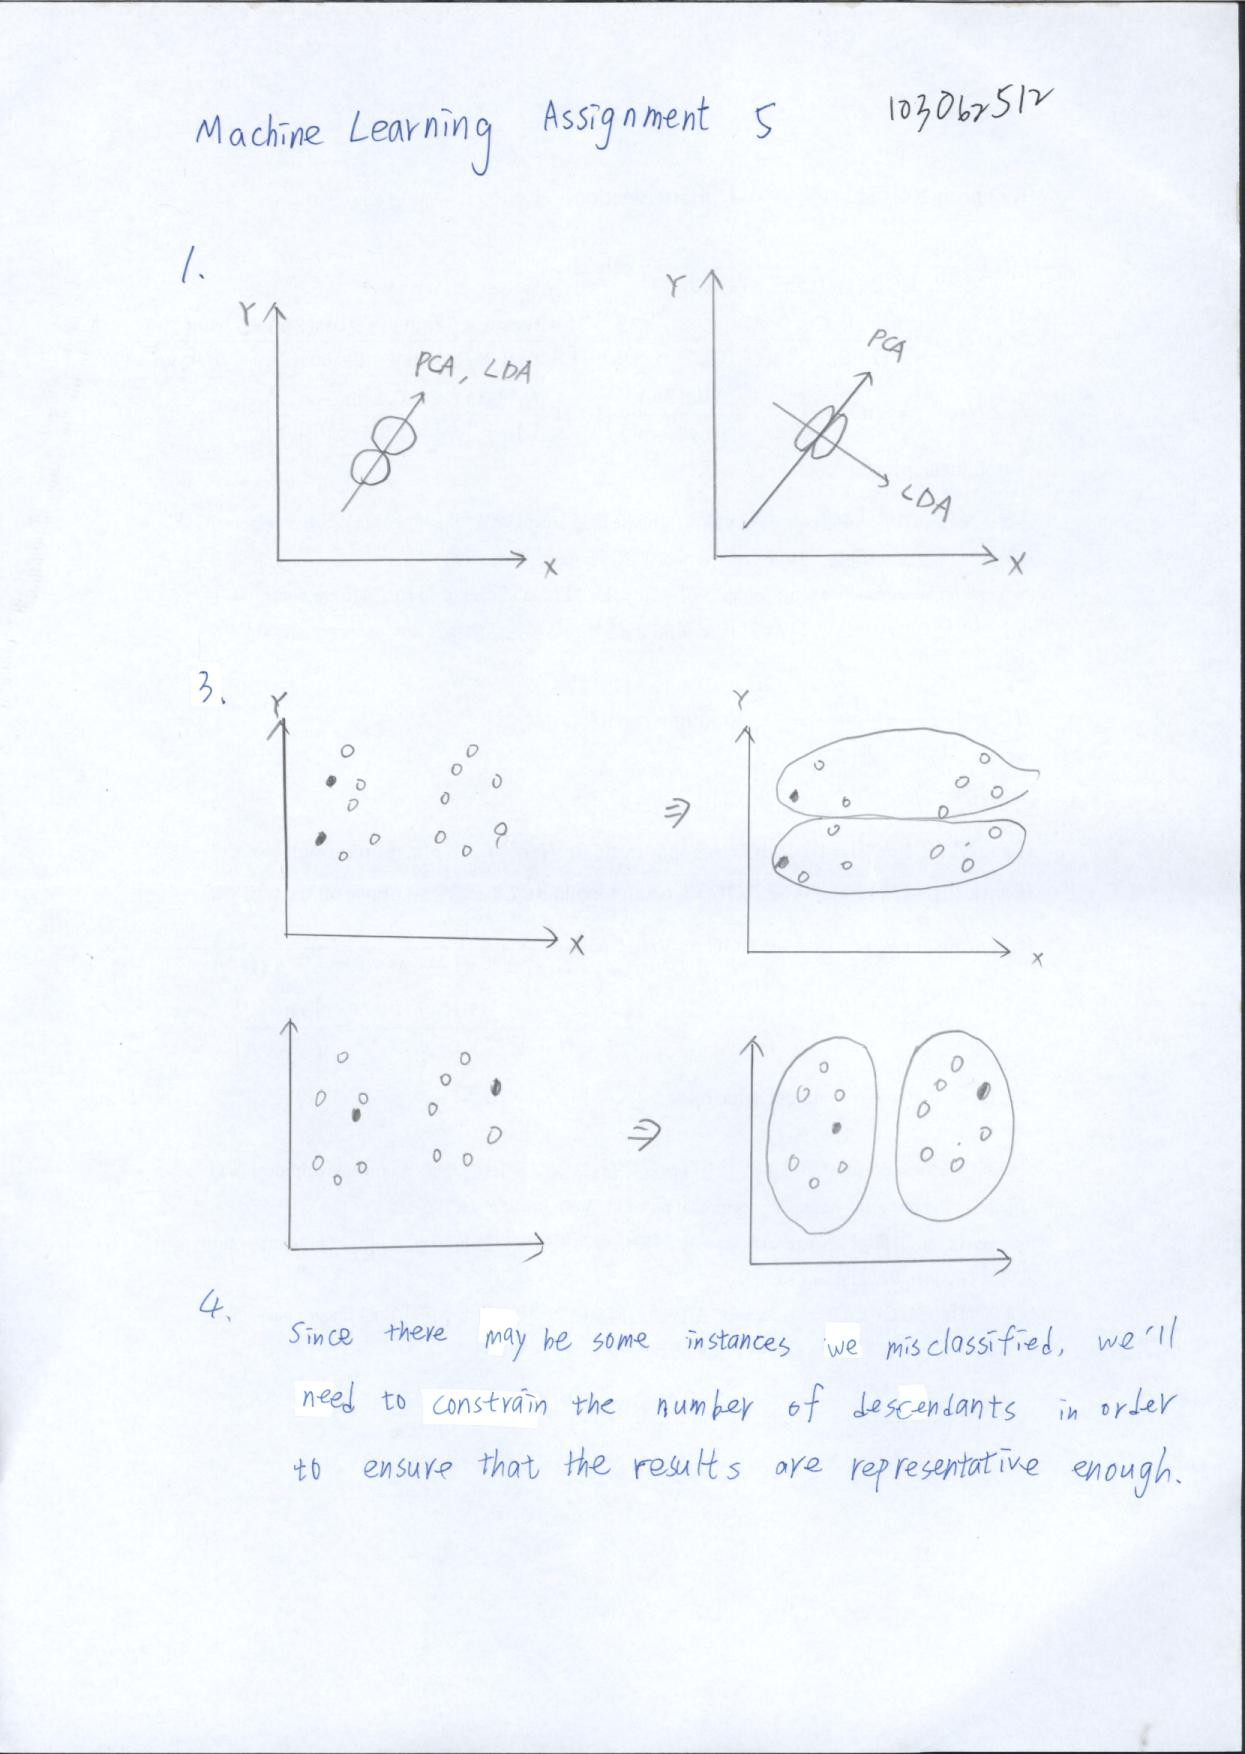 Machine Learning Assignment 5 103062512
1.
Y
PCA, LDA
X
Y
PCA
LDA
X
3.
Y
X
⇒
Y
X
⇒
4.
Since there may be some instances we misclassified, we'll
need to constrain the number of descendants in order
to ensure that the results are representative enough.